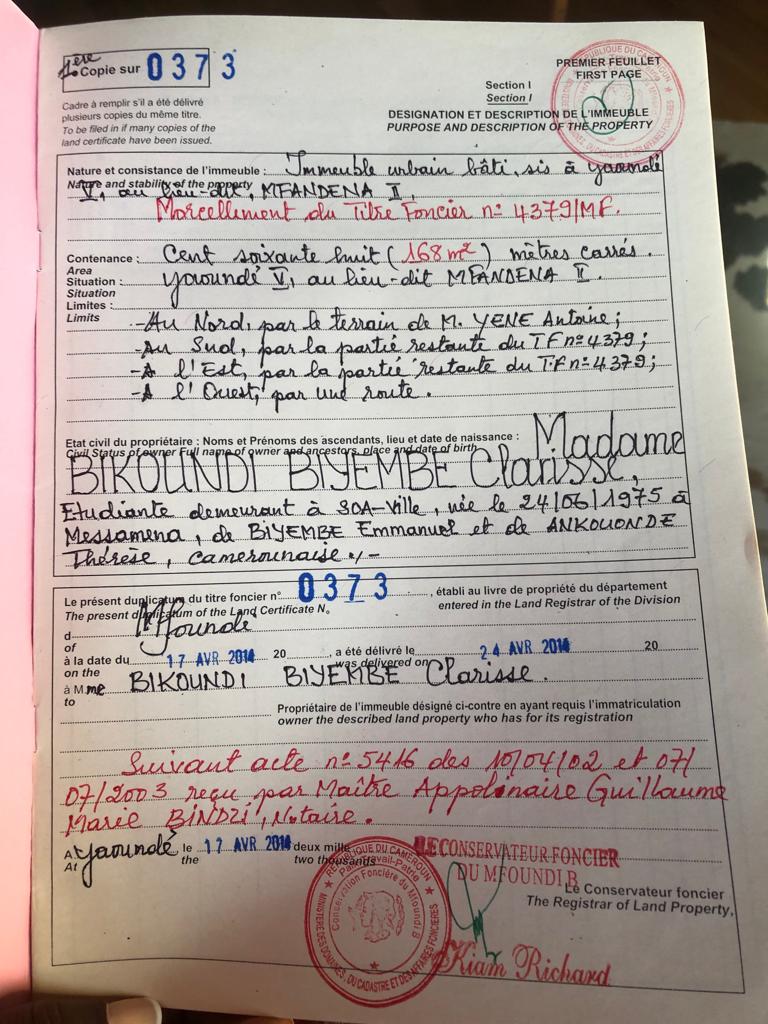 1ère Copie sur 0373
PREMIER FEUILLET
FIRST PAGE
Section I
Section I
Cadre à remplir s'il a été délivré
plusieurs copies du même titre.
To be filed in if many copies of the
land certificate have been issued.
DESIGNATION ET DESCRIPTION DE L'IMMEUBLE
PURPOSE AND DESCRIPTION OF THE PROPERTY
Nature et consistance de l'immeuble : Immeuble urbain bâti, sis à yaoundé
Nature and stability of the property
V, au lieu-dit, MFANDENA II,
Morcellement du Titre Foncier n° 4379/MF.
Contenance : Cent soixante huit (168 m²) mètres carrés.
Area
Situation : yaoundé V, au lieu-dit MFANDENA II.
Situation
Limites :
Limits
- Au Nord, par le terrain de M. YENE Antoine;
- Au Sud, par la partie restante du TF n° 4379;
- A l'Est, par la partie restante du T.F n° 4379;
- A l'Ouest, par une route.
Etat civil du propriétaire : Noms et Prénoms des ascendants, lieu et date de naissance : Madame
Civil Status of owner Full name of owner and ancestors, place and date of birth
BIKOUNDI BIYEMBE Clarisse,
Etudiante demeurant à SOA-Ville, née le 24/06/1975 à
Messamena, de BIYEMBE Emmanuel et de ANKOUONDE
Thérèse, camerounaise ./-
Le présent duplicatum du titre foncier n° 0373, établi au livre de propriété du département
The present duplicatum of the Land Certificate N° entered in the Land Registrar of the Division
d Mfoundi
of
à la date du 17 AVR 2014 20 , a été délivré le 24 AVR 2014 20
on the was delivered on
à Mme BIKOUNDI BIYEMBE Clarisse.
to
Propriétaire de l'immeuble désigné ci-contre en ayant requis l'immatriculation
owner the described land property who has for its registration
Suivant acte n° 5416 des 10/04/02 et 07/
07/2003 reçu par Maître Appolinaire Guillaume
Marie BINDZI, Notaire.
A yaoundé le 17 AVR 2014 deux mille
At the two thousands
LE CONSERVATEUR FONCIER
DU MFOUNDI B
Le Conservateur foncier
The Registrar of Land Property,
REPUBLIQUE DU CAMEROUN
Paix-Travail-Patrie
Conservation Foncière du Mfoundi B
MINISTERE DES DOMAINES, DU CADASTRE ET DES AFFAIRES FONCIERES
Kiam Richard